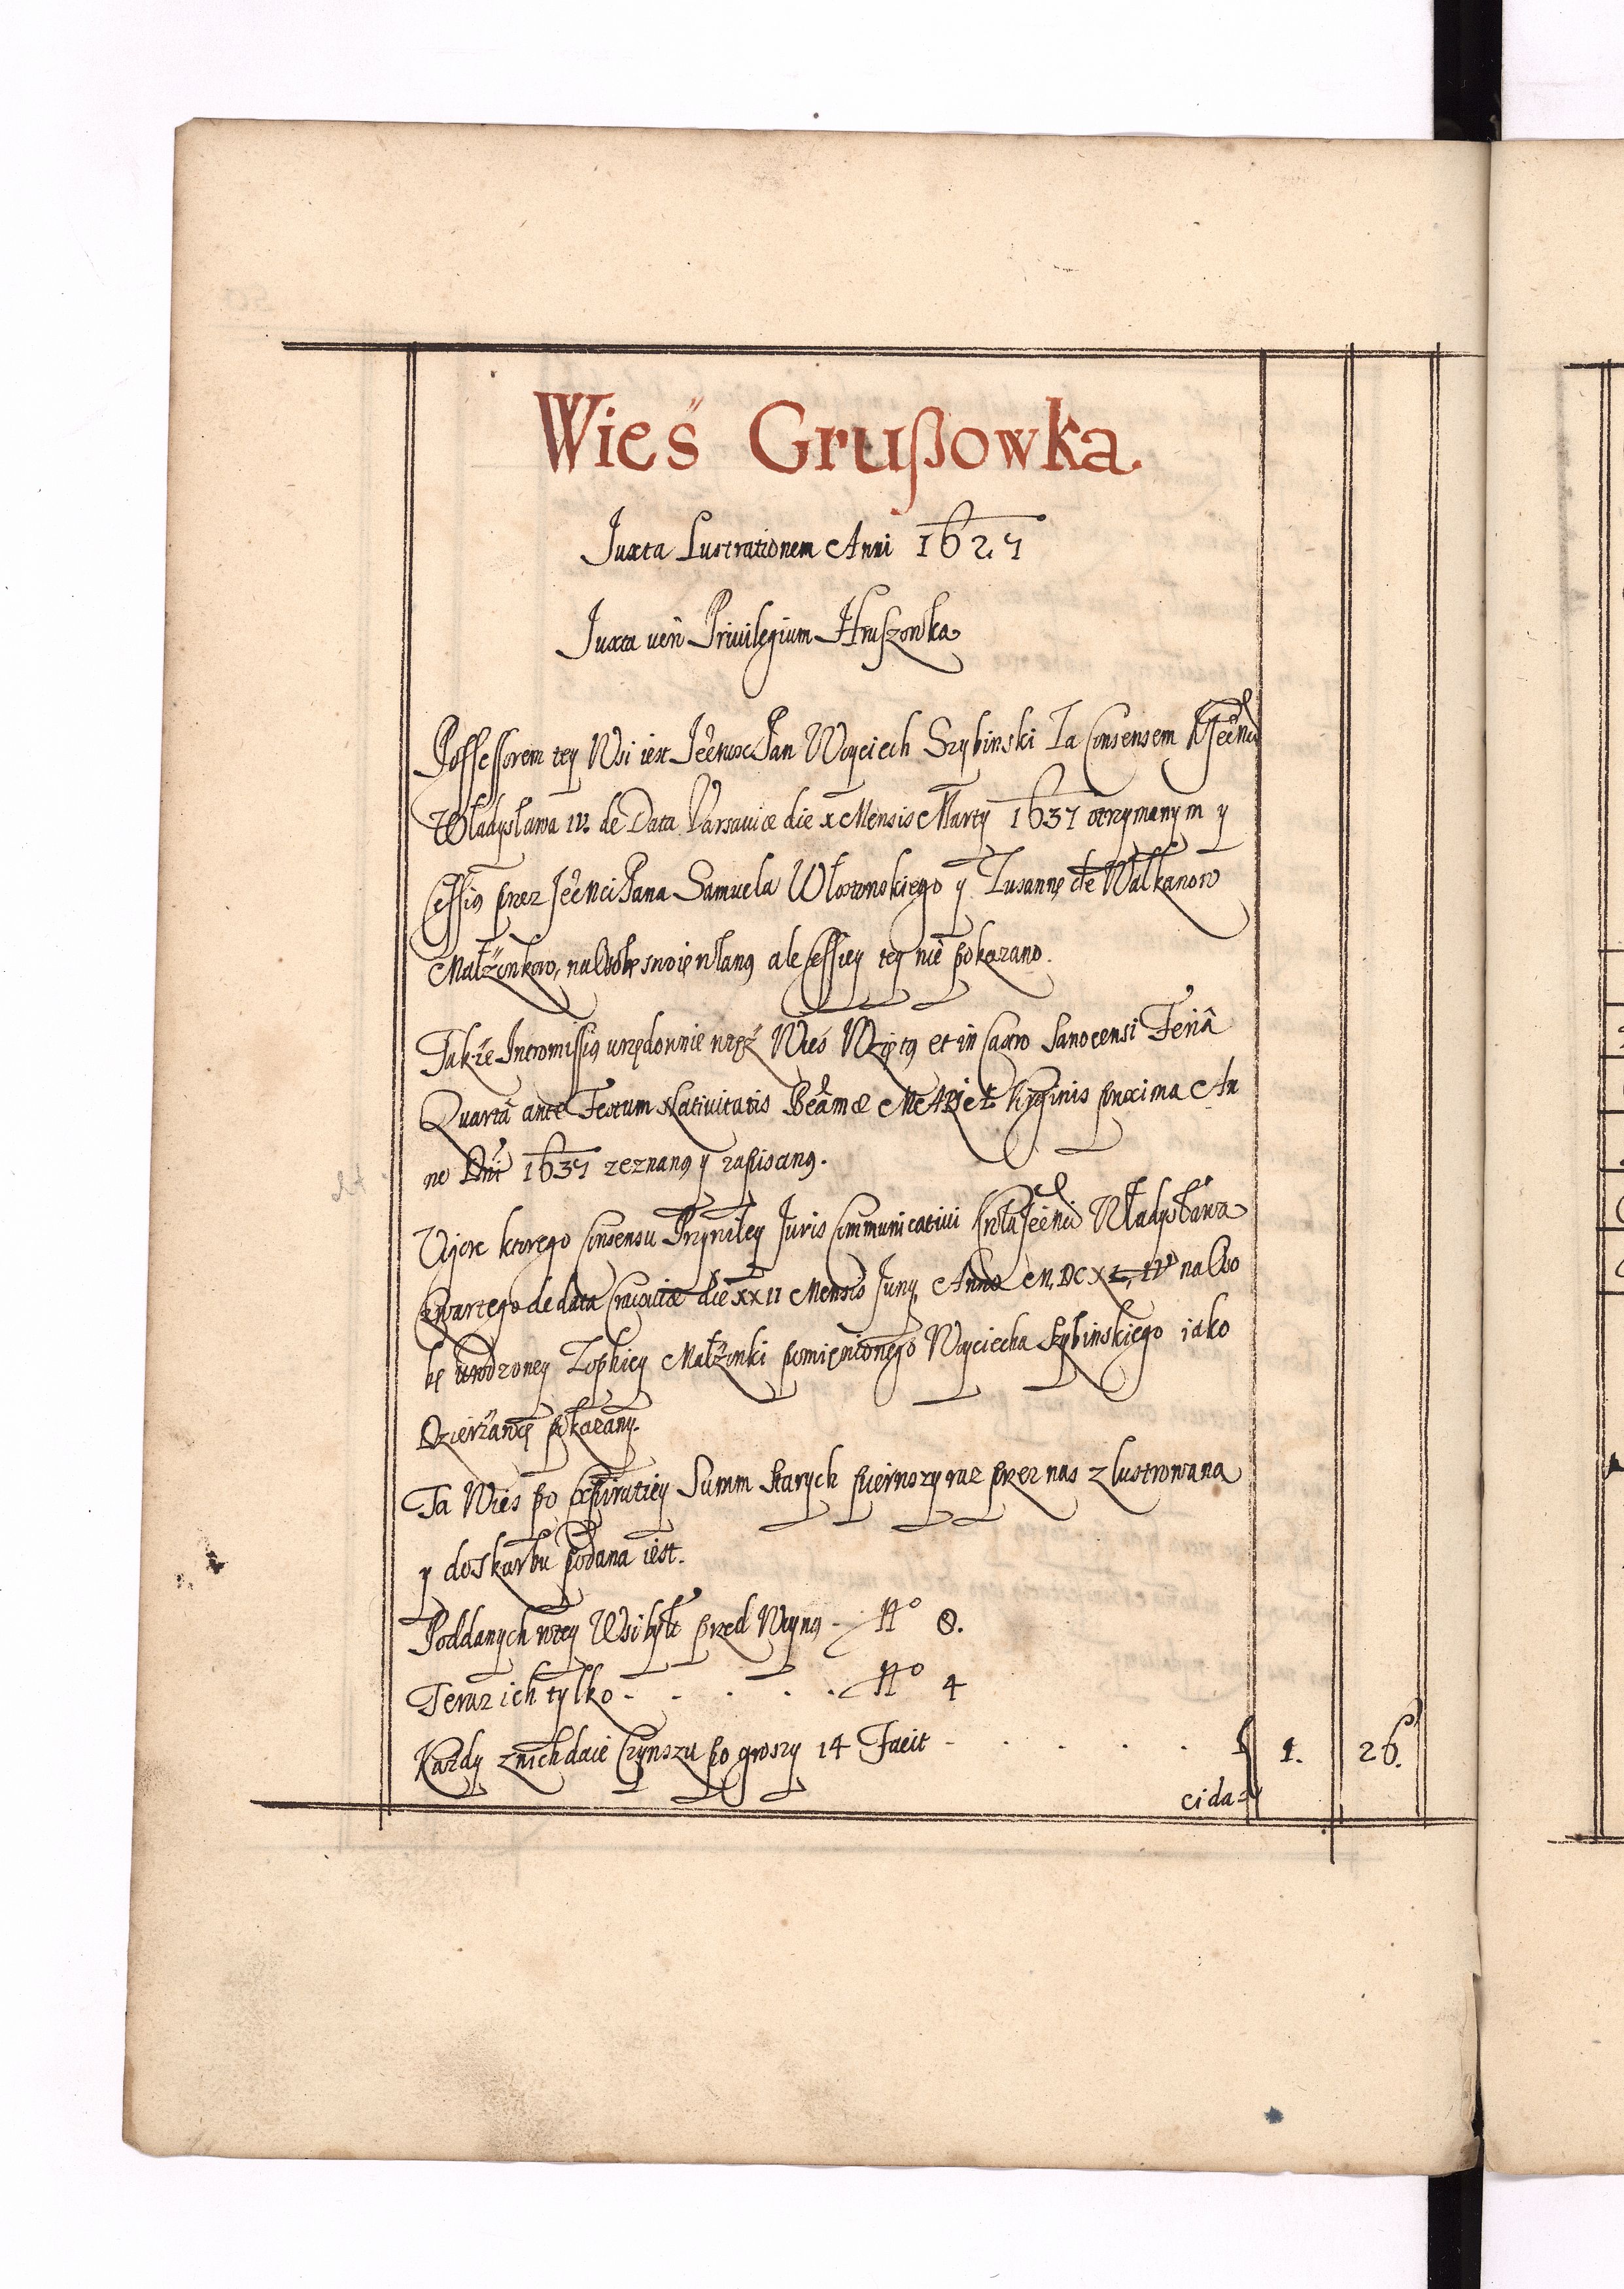 Wieś Grußowka.
Juxta Lustrationem Anni 1627
Juxta verũ Privilegium Hruszowka
Possessorem tey Wsi iest Pan Woyciech Szybinski Za Consensem
Władysława IV. de Data Varsaviæ die x Mensis Marty 1637 otrzymanym y
Cessią przez Pana Samuela y Zuzannę de Walkanow
Małżonkow, na Osobę swoię wlaną ale Cessiey tey nie pokazano.
Także Intromissią urzędownie w tęż Wieś Wziętą et in Castro Sanocensi Feriâ
Quartâ ante Festum Nativitatis Beatæ MARIÆ Virginis proxima An
no Dni 1637 zeznaną y zapisaną.
Vigore ktorego Consensu Przywiley Juris Communicativi Krola Władysława
Czwartego de data Cracoviæ die XXII Mensis Juny Anno M.DC.XL.IV na Oso
bę urodzoney Zophiey Małżonki pomienionego Woyciecha Szybinskiego iako
Dzierżawcę pokazany.
Ta Wieś po Expiratiey Summ starych pierwszy raz przez nas zlustrowana
y do Skarbu podana iest.
Poddanych w tey Wsi było przed Woyną - No 8.
Teraz ich tylko - . . . . No 4
Każdy z nich daie Czynszu po groszy 14 Facit - . . . . 1. 26.
ci da=